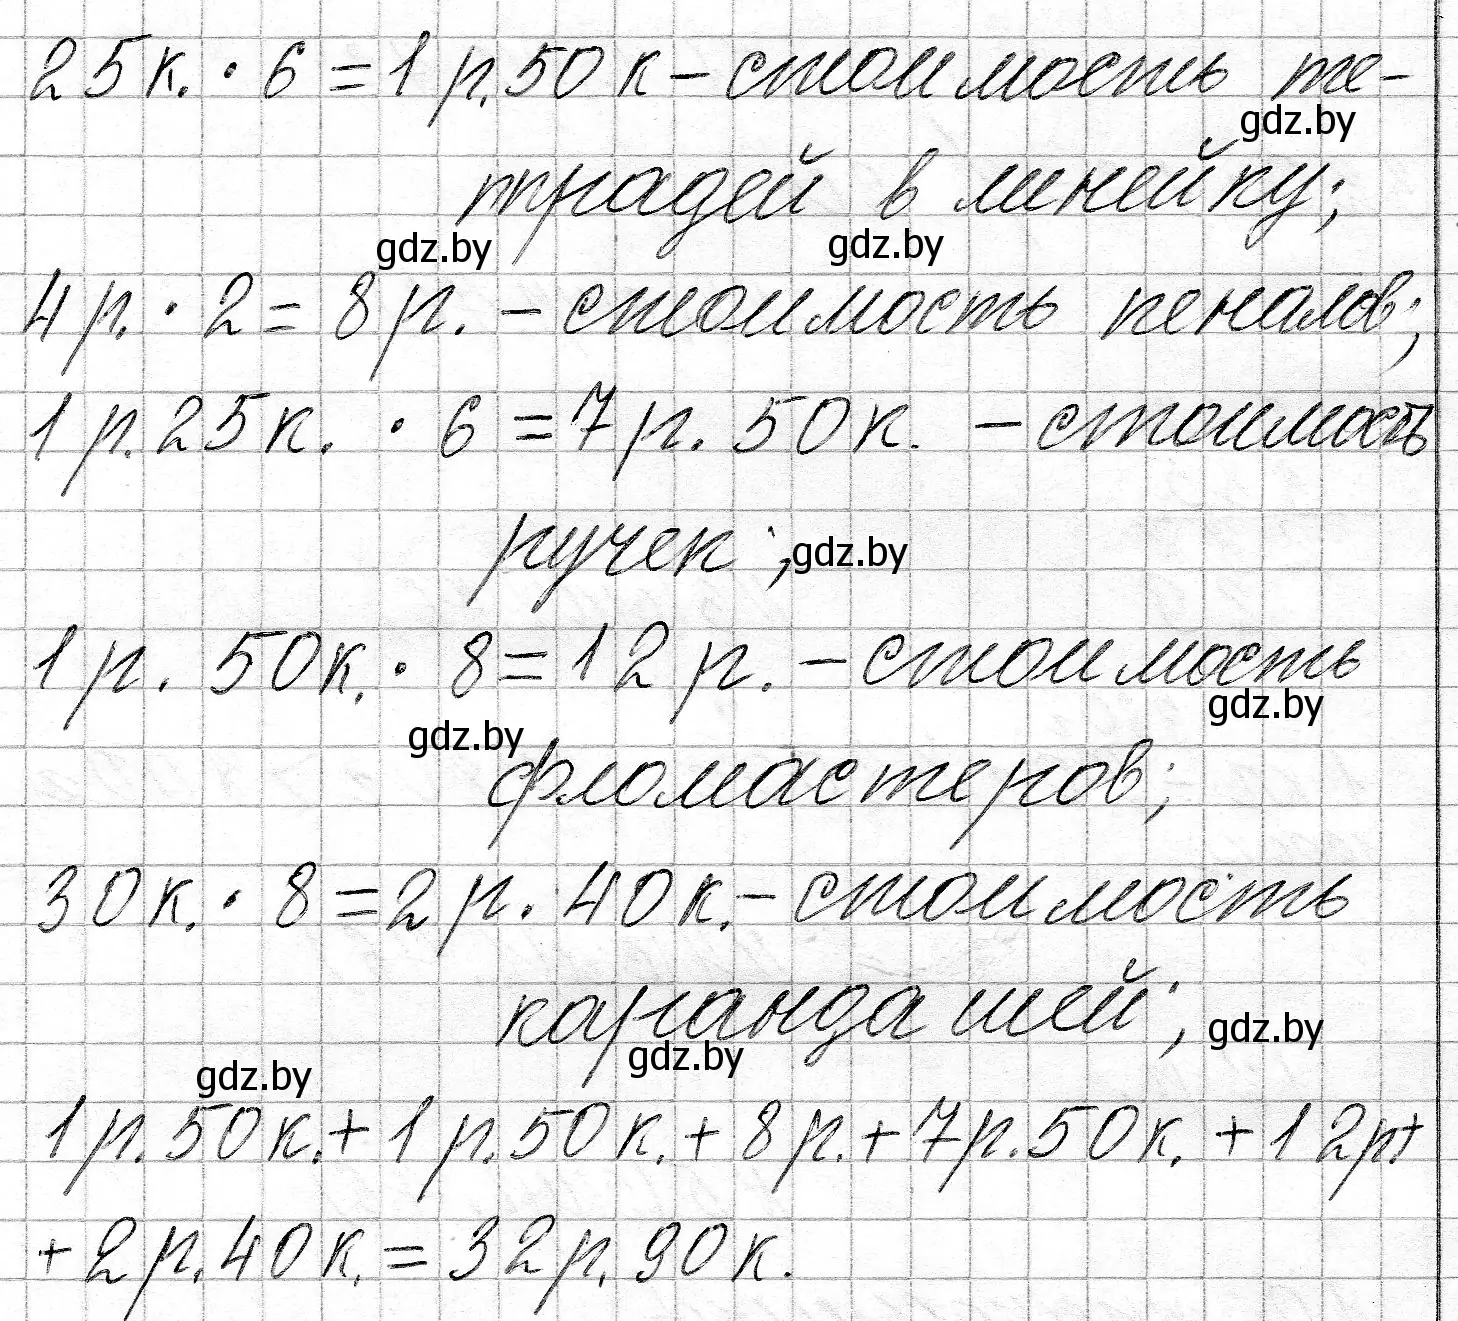 25к. · 6 = 1 р. 50 к – стоимость те-
gdz.by
традей в линейку;
gdz.by gdz.by
4 р. · 2 = 8 р. – стоимость пеналов;
1 р. 25 к. · 6 = 7 р. 50 к. – стоимость
ручек; gdz.by
1 р. 50к. · 8 = 12 р. – стоимость
gdz.by gdz.by
фломастеров;
30к. · 8 = 2 р. 40 к. – стоимость
карандашей; gdz.by
gdz.by gdz.by
1 р. 50к. + 1 р. 50 к. + 8 р. + 7 р. 50 к. + 12 р. +
+ 2 р. 40 к. = 32 р. 90 к.